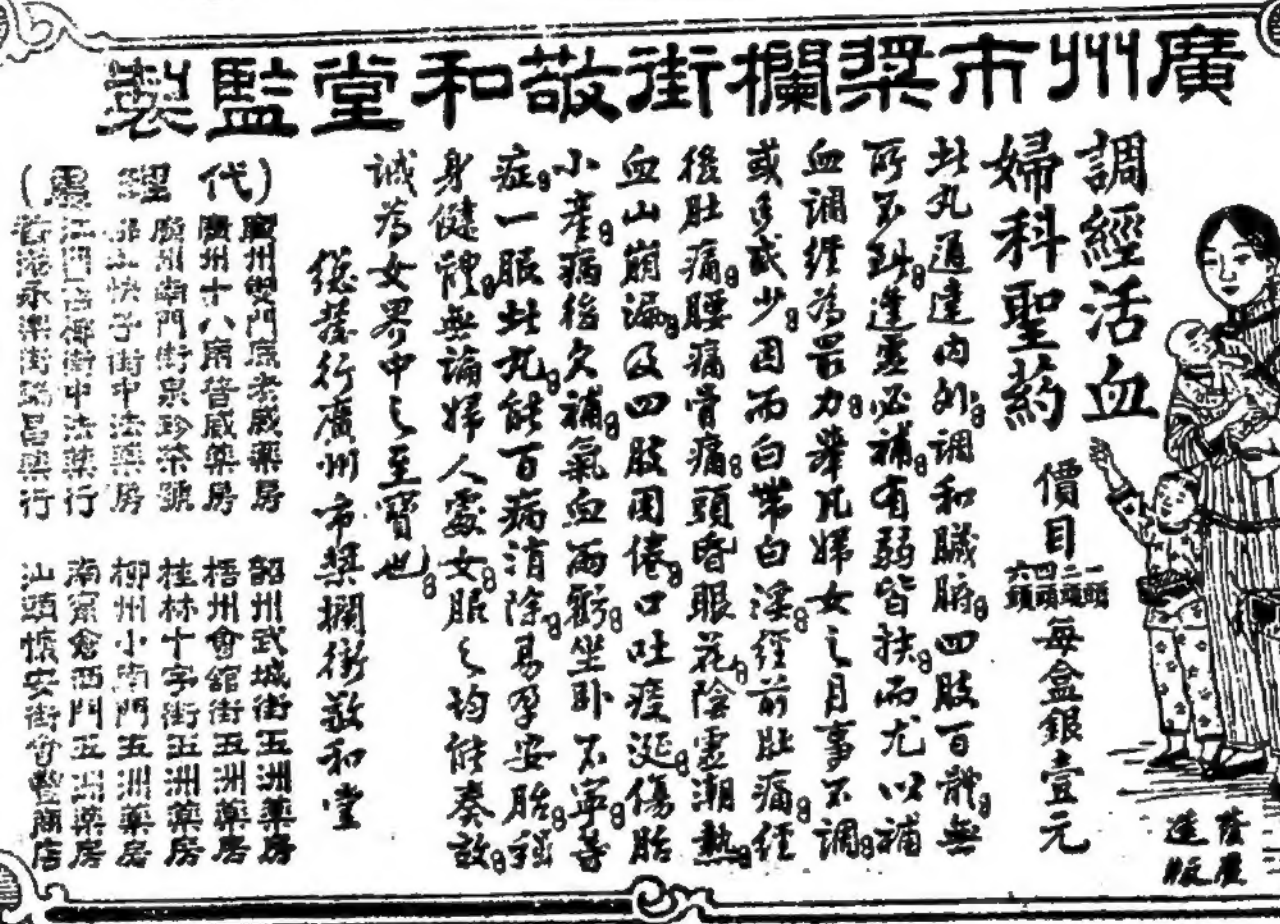 廣州市槳欄街敬和堂監製
調經活血
婦科聖葯
價目
一頭二頭四頭六頭
每盒銀壹元
此丸通達內外。調和臟腑。四肢百體。無
所不到。逢虛必補。有弱皆扶。而尤以補
血調經為最力。舉凡婦女之月事不調。
或多或少。因而白帶白淫。經前肚痛。經
後肚痛。腰痛骨痛。頭昏眼花。陰虛潮熱。
血山崩漏。及四肢困倦。口吐痰涎。傷胎
小產。病後欠補。氣血両虧。坐卧不寧。等
症。一服此丸。能百病消除。易孕安胎。强
身健體。無論婦人處女。服之均能奏效。
誠為女界中之至寶也。
總發行廣州市槳欄街敬和堂
(代理處)
廣州雙門底老威藥房
廣州十八甫普威藥房
廣州南門街泉珍茶號
佛山快子街中法藥房
江門街中法藥行
香港永樂街昌藥行
韶州武城街五洲藥房
梧州會館街五洲藥房
桂林十字街五洲藥房
柳州小南門五洲藥房
南寧倉西門五洲藥房
汕頭懷安街商店